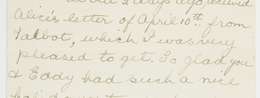 2 days ago, received
Alice's letter of April 10th from
Talbot, which I was very
pleased to get. So glad you
& Eddy had such a nice